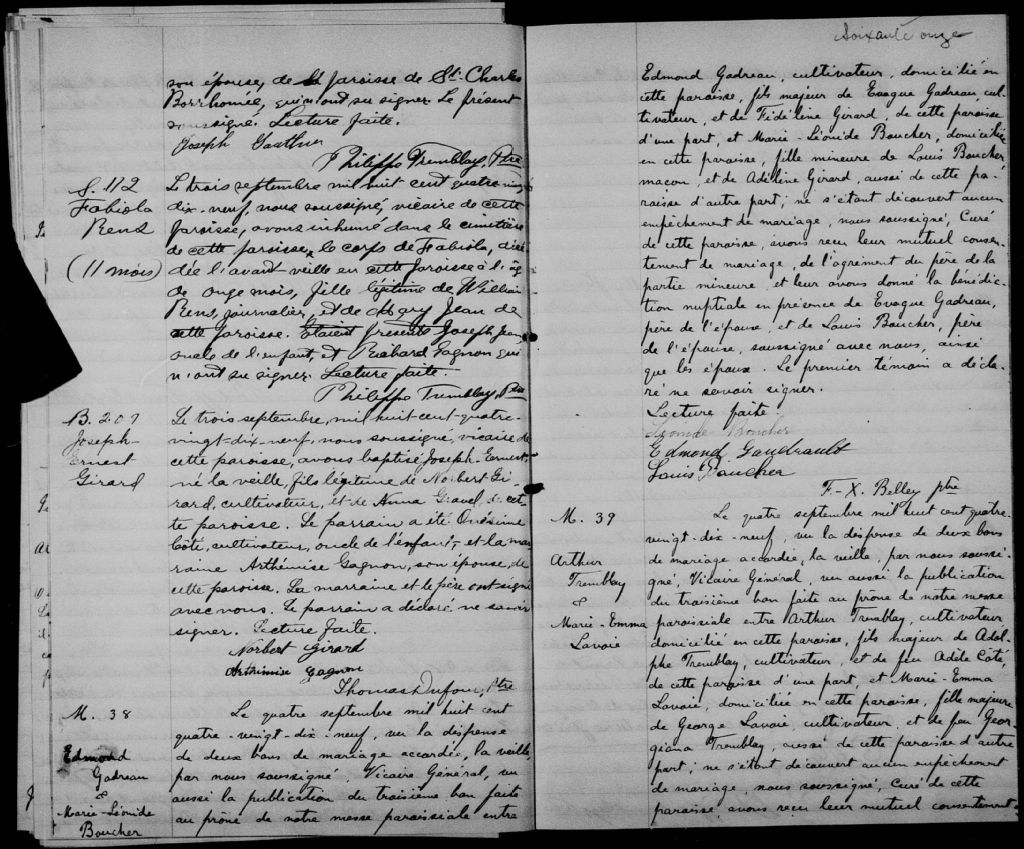 son épouse, de la Paroisse de St-Charles
Borrhomée, qui n'ont su signer. Le présent
soussigné. Lecture faite.
Joseph Gauthier
Philippe Tremblay, Ptre
S. 112
Fabiola
Rens
(11 mois)
Le trois septembre mil huit cent quatre vingt
dix-neuf, nous soussigné, vicaire de cette
Paroisse, avons inhumé dans le cimetière
de cette paroisse, le corps de Fabiola, décé
dée l'avant-veille en cette Paroisse à l'âge
de onze mois, fille légitime de William
Rens, journalier, et de Mary Jean de
cette Paroisse. Etaient présents Joseph Jean,
oncle de l'enfant, et Richard Gagnon qui
n'ont su signer. Lecture faite.
Philippe Tremblay, Ptre
B. 207
Joseph-
Ernest
Girard
Le trois septembre, mil huit-cent-quatre-
vingt-dix-neuf, nous soussigné, vicaire de
cette paroisse, avons baptisé Joseph-Ernest,
né la veille, fils légitime de Norbert Gi-
rard, cultivateur, et de Anna Gravel, de cet-
te paroisse. Le parrain a été Onésime
Côté, cultivateur, oncle de l'enfant, et la mar
raine Arthémise Gagnon, son épouse, de
cette paroisse. La marraine et le père ont signé
avec nous. Le parrain a déclaré ne savoir
signer. Lecture faite.
Norbert Girard
Arthimise Gagnon
Thomas Dufour, Ptre
M. 38
Edmond
Gadreau
&
Marie-Léonide
Boucher
Le quatre septembre mil huit cent
quatre-vingt-dix-neuf, vu la dispense
de deux bans de mariage accordée, la veille,
par nous soussigné, Vicaire Général, vu
aussi la publication du troisième ban faite
au prône de notre messe paroissiale entre
Soixante onze
Edmond Gadreau, cultivateur, domicilié en
cette paroisse, fils majeur de Evague Gadreau, cul-
tivateur, et de Fidéline Girard, de cette paroisse
d'une part, et Marie-Léonide Boucher, domiciliée
en cette paroisse, fille mineure de Louis Boucher
maçon, et de Adéline Girard, aussi de cette pa-
roisse d'autre part; ne s'étant découvert aucun
empêchement de mariage, nous soussigné, Curé
de cette paroisse, avons reçu leur mutuel consen-
tement de mariage, de l'agrément du père de la
partie mineure et leur avons donné la bénédic-
tion nuptiale en présence de Evague Gadreau,
père de l'époux, et de Louis Boucher, père
de l'épouse, soussigné avec nous, ainsi
que les époux. Le premier témoin a décla-
ré ne savoir signer.
Lecture faite.
Léonide Boucher
Edmond Gaudrault
Louis Boucher
F-X. Belley ptre
M. 39
Arthur
Tremblay
&
Marie-Emma
Lavoie
Le quatre septembre mil huit cent quatre-
vingt-dix-neuf, vu la dispense de deux bans
de mariage accordée, la veille, par nous soussi-
gné, Vicaire Général, vu aussi la publication
du troisième ban faite au prône de notre messe
paroissiale entre Arthur Tremblay, cultivateur
domicilié en cette paroisse, fils majeur de Adol-
phe Tremblay, cultivateur, et de feu Adèle Côté,
de cette paroisse d'une part, et Marie-Emma
Lavoie, domiciliée en cette paroisse, fille majeure
de George Lavoie, cultivateur, et de feu Geor-
giana Tremblay, aussi de cette paroisse d'autre
part; ne s'étant découvert aucun empêchement
de mariage, nous soussigné, Curé de cette
paroisse, avons reçu leur mutuel consentement